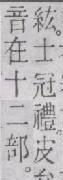 紘。士冠禮。皮弁
音在十二部。